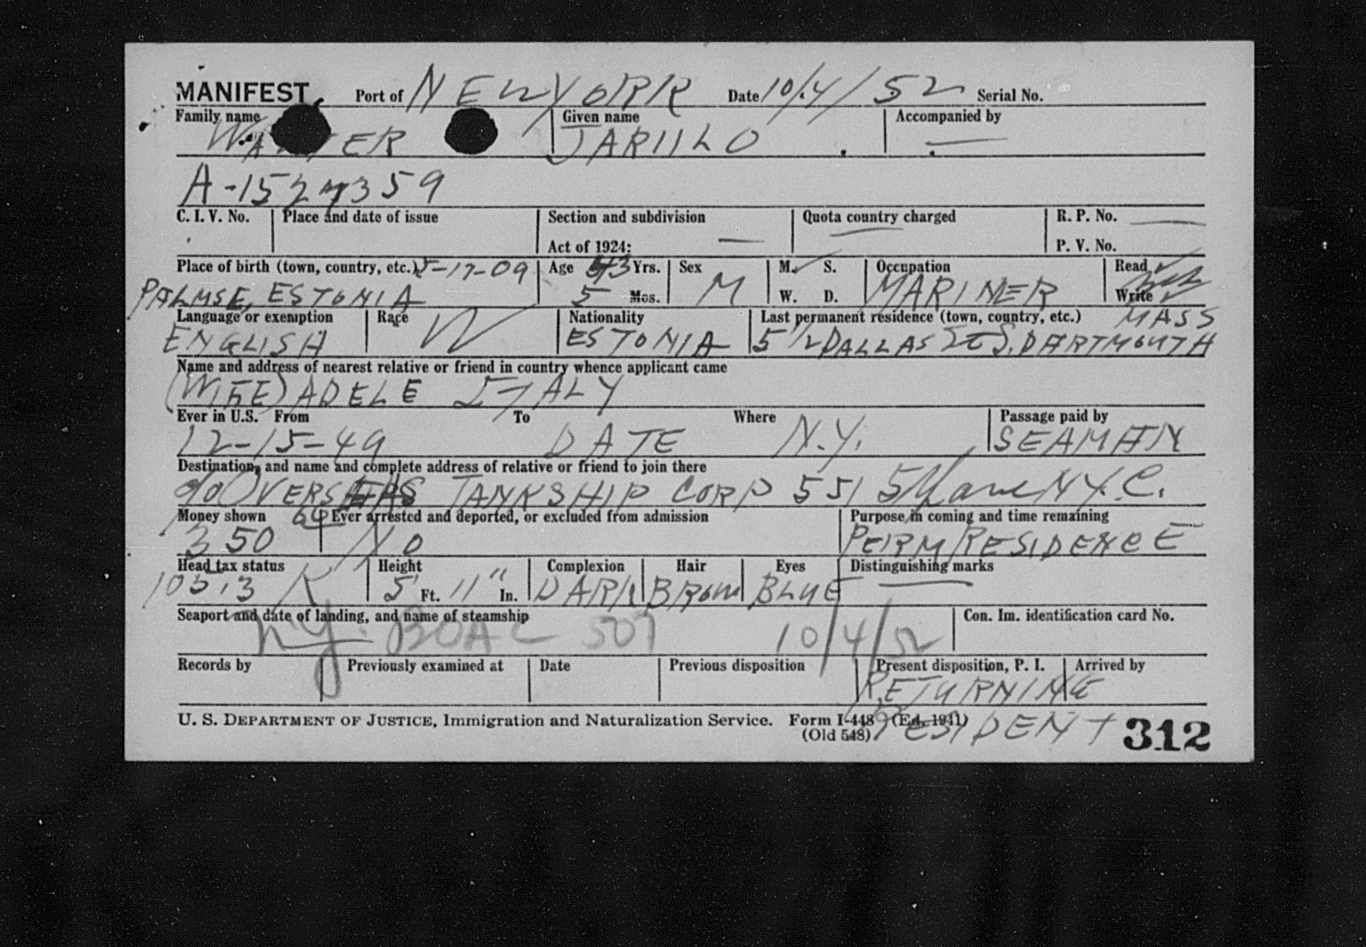 MANIFEST Port of NEW YORK Date 10/4/52 Serial No.
Family name Given name Accompanied by
JARIILO —
A-1527359
C. I. V. No. Place and date of issue Section and subdivision Quota country charged R. P. No. —
Act of 1924: — — P. V. No.
Place of birth (town, country, etc.) 5-17-09 Age 43 Yrs. Sex M. ✓ S. Occupation Read ✓
PALMSE, ESTONIA 5 Mos. M W. D. MARINER Write ✓
Language or exemption Race W Nationality Last permanent residence (town, country, etc.) MASS
ENGLISH ESTONIA 5 1/2 DALLAS St S. DARTMOUTH
Name and address of nearest relative or friend in country whence applicant came
(WIFE) ADELE ITALY
Ever in U.S. From To Where Passage paid by
12-15-49 DATE N.Y. SEAMAN
Destination, and name and complete address of relative or friend to join there
c/o OVERSEAS TANKSHIP CORP 551 5th ave N.Y.C.
Money shown Ever arrested and deported, or excluded from admission Purpose in coming and time remaining
350 NO PERM RESIDENCE
Head tax status Height Complexion Hair Eyes Distinguishing marks —
5' Ft. 11" In. DARK Brown BLUE
Seaport and date of landing, and name of steamship Con. Im. identification card No.
NY. BOAC 507 10/4/52
Records by Previously examined at Date Previous disposition Present disposition, P. I. Arrived by
RETURNING
U. S. DEPARTMENT OF JUSTICE, Immigration and Naturalization Service. Form I-448 (Ed. 1941) RESIDENT 312
(Old 548)